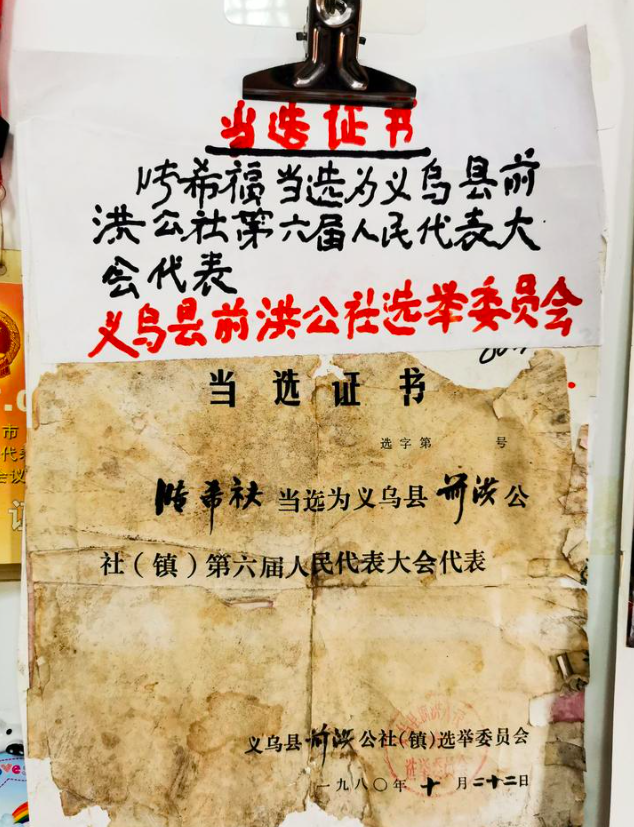 当选证书
希福当选为义乌县前
洪公社第六届人民代表大
会代表
义乌县前洪公社选举委员会
当选证书
选字第 号
希 当选为义乌县前洪公
社（镇）第六届人民代表大会代表
义乌县前洪公社（镇）选举委员会
一九八〇年十月二十二日
市
代表
会议